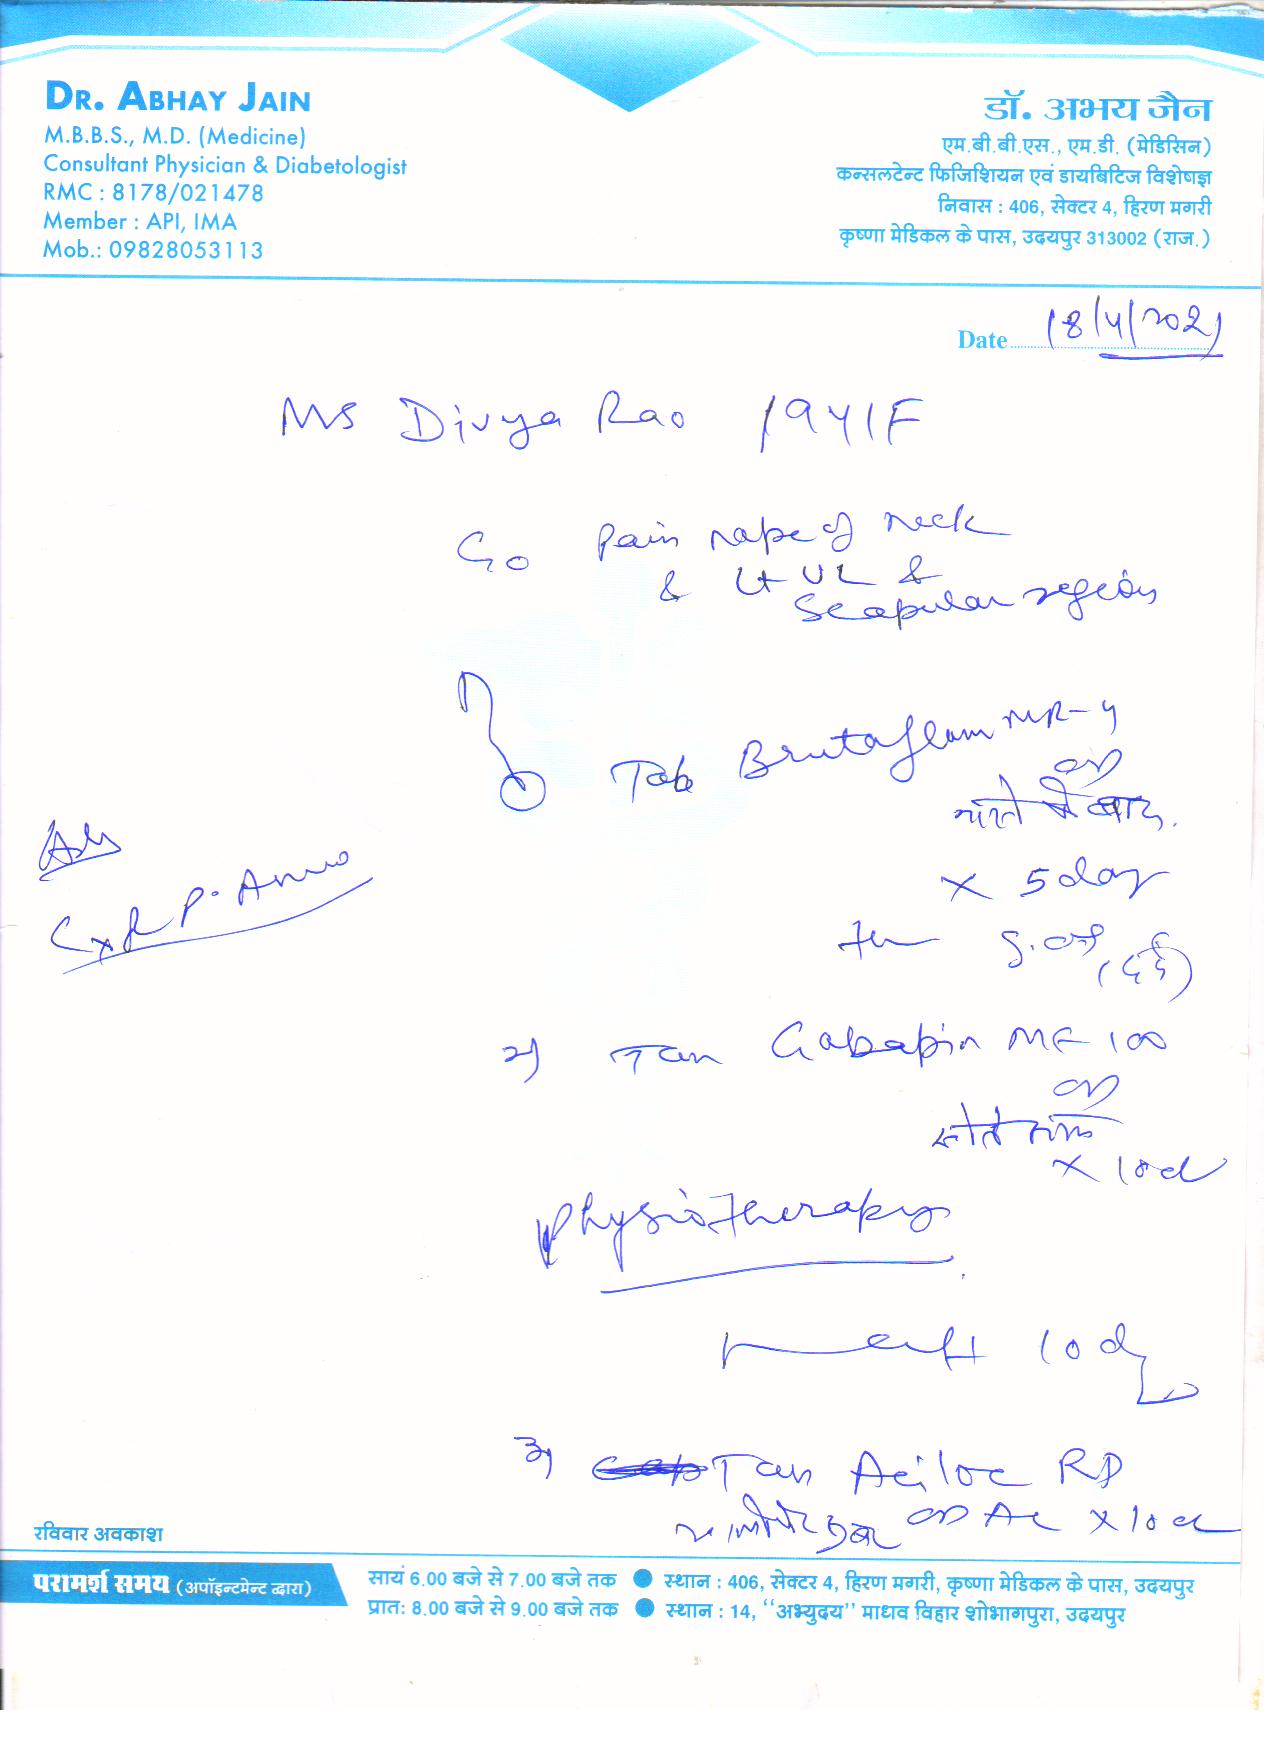 DR. ABHAY JAIN
M.B.B.S., M.D. (Medicine)
Consultant Physician & Diabetologist
RMC : 8178/021478
Member : API, IMA
Mob.: 09828053113
डॉ. अभय जैन
एम.बी.बी.एस., एम.डी. (मेडिसिन)
कन्सलटेन्ट फिजिशियन एवं डायबिटिज विशेषज्ञ
निवास : 406, सेक्टर 4, हिरण मगरी
कृष्णा मेडिकल के पास, उदयपुर 313002 (राज.)
Date 18/4/2021
Ms Divya Rao 19y/F
C/o Pain nape of neck
& Lt UL &
Scapular region
Tab Brutaflam MR-4
OD
x 5 day
(दर्द)
Adv
P. Anus
2) Tab Gabapin ME 100
OD
x 10d
Physiotherapy
neck 10 d
3) Tab Aciloc RD
OD AC x 10d
रविवार अवकाश
परामर्श समय (अपॉइन्टमेन्ट द्वारा)
सायं 6.00 बजे से 7.00 बजे तक ● स्थान : 406, सेक्टर 4, हिरण मगरी, कृष्णा मेडिकल के पास, उदयपुर
प्रातः 8.00 बजे से 9.00 बजे तक ● स्थान : 14, ‘‘अभ्युदय’’ माधव विहार शोभागपुरा, उदयपुर